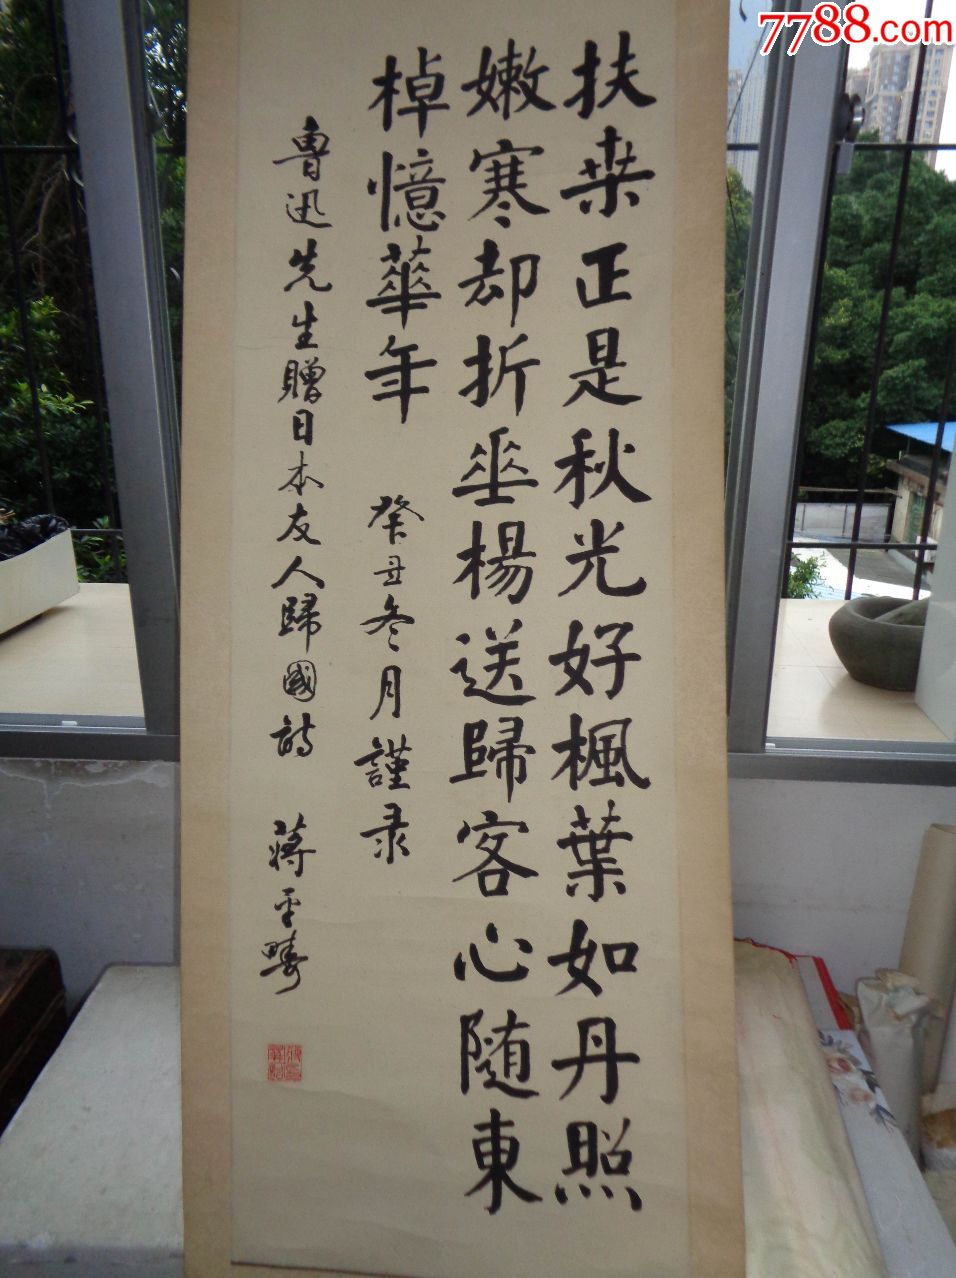 7788.com
扶桒正是秋光好楓葉如丹照
嫩寒却折垂楊送歸客心隨東
棹憶華年
癸丑冬月謹录
魯迅先生贈日本友人歸國詩
蔣平疇